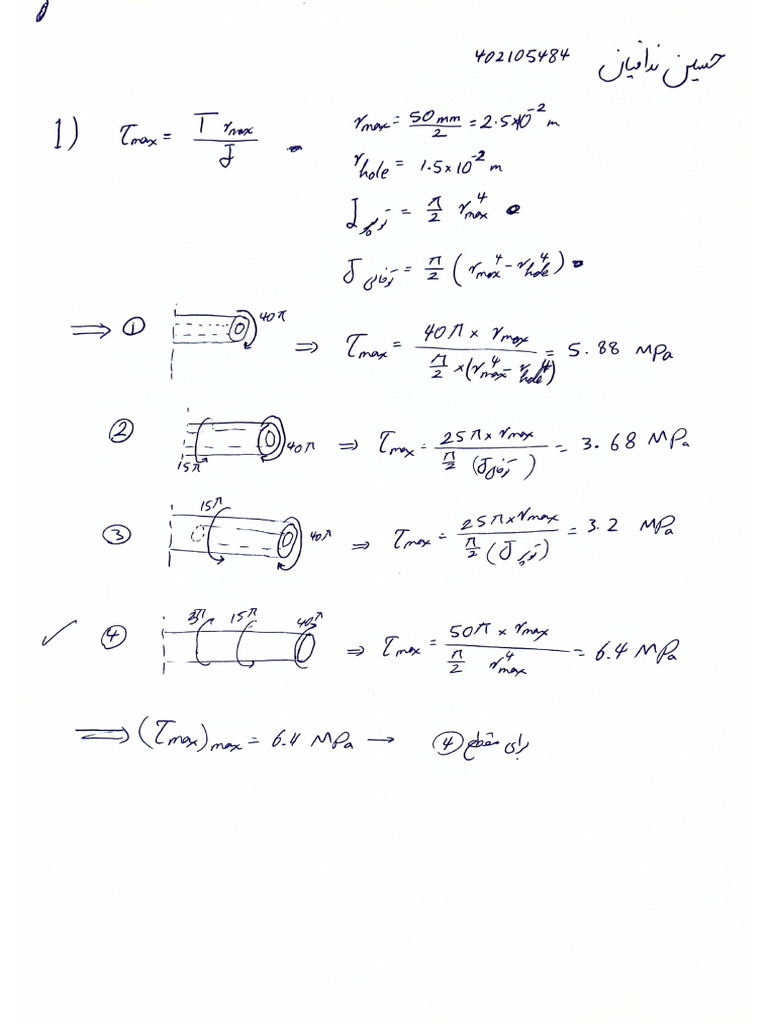 402105484 حسین ندافیان
1) τmax = T rmax / J
rmax = 50 mm / 2 = 2.5×10^-2 m
rhole = 1.5×10^-2 m
J توپر = π/2 rmax^4
J توخالی = π/2 (rmax^4 - rhole^4)
⇒ ① 40π ⇒ τmax = 40π × rmax / π/2 × (rmax^4 - rhole^4) = 5.88 MPa
② 15π 40π ⇒ τmax = 25π × rmax / π/2 (J توخالی) = 3.68 MPa
③ 15π 40π ⇒ τmax = 25π × rmax / π/2 (J توپر) = 3.2 MPa
✓ ④ 15π 40π ⇒ τmax = 50π × rmax / π/2 rmax^4 = 6.4 MPa
⇒ (τmax)max = 6.4 MPa → برای مقطع ④